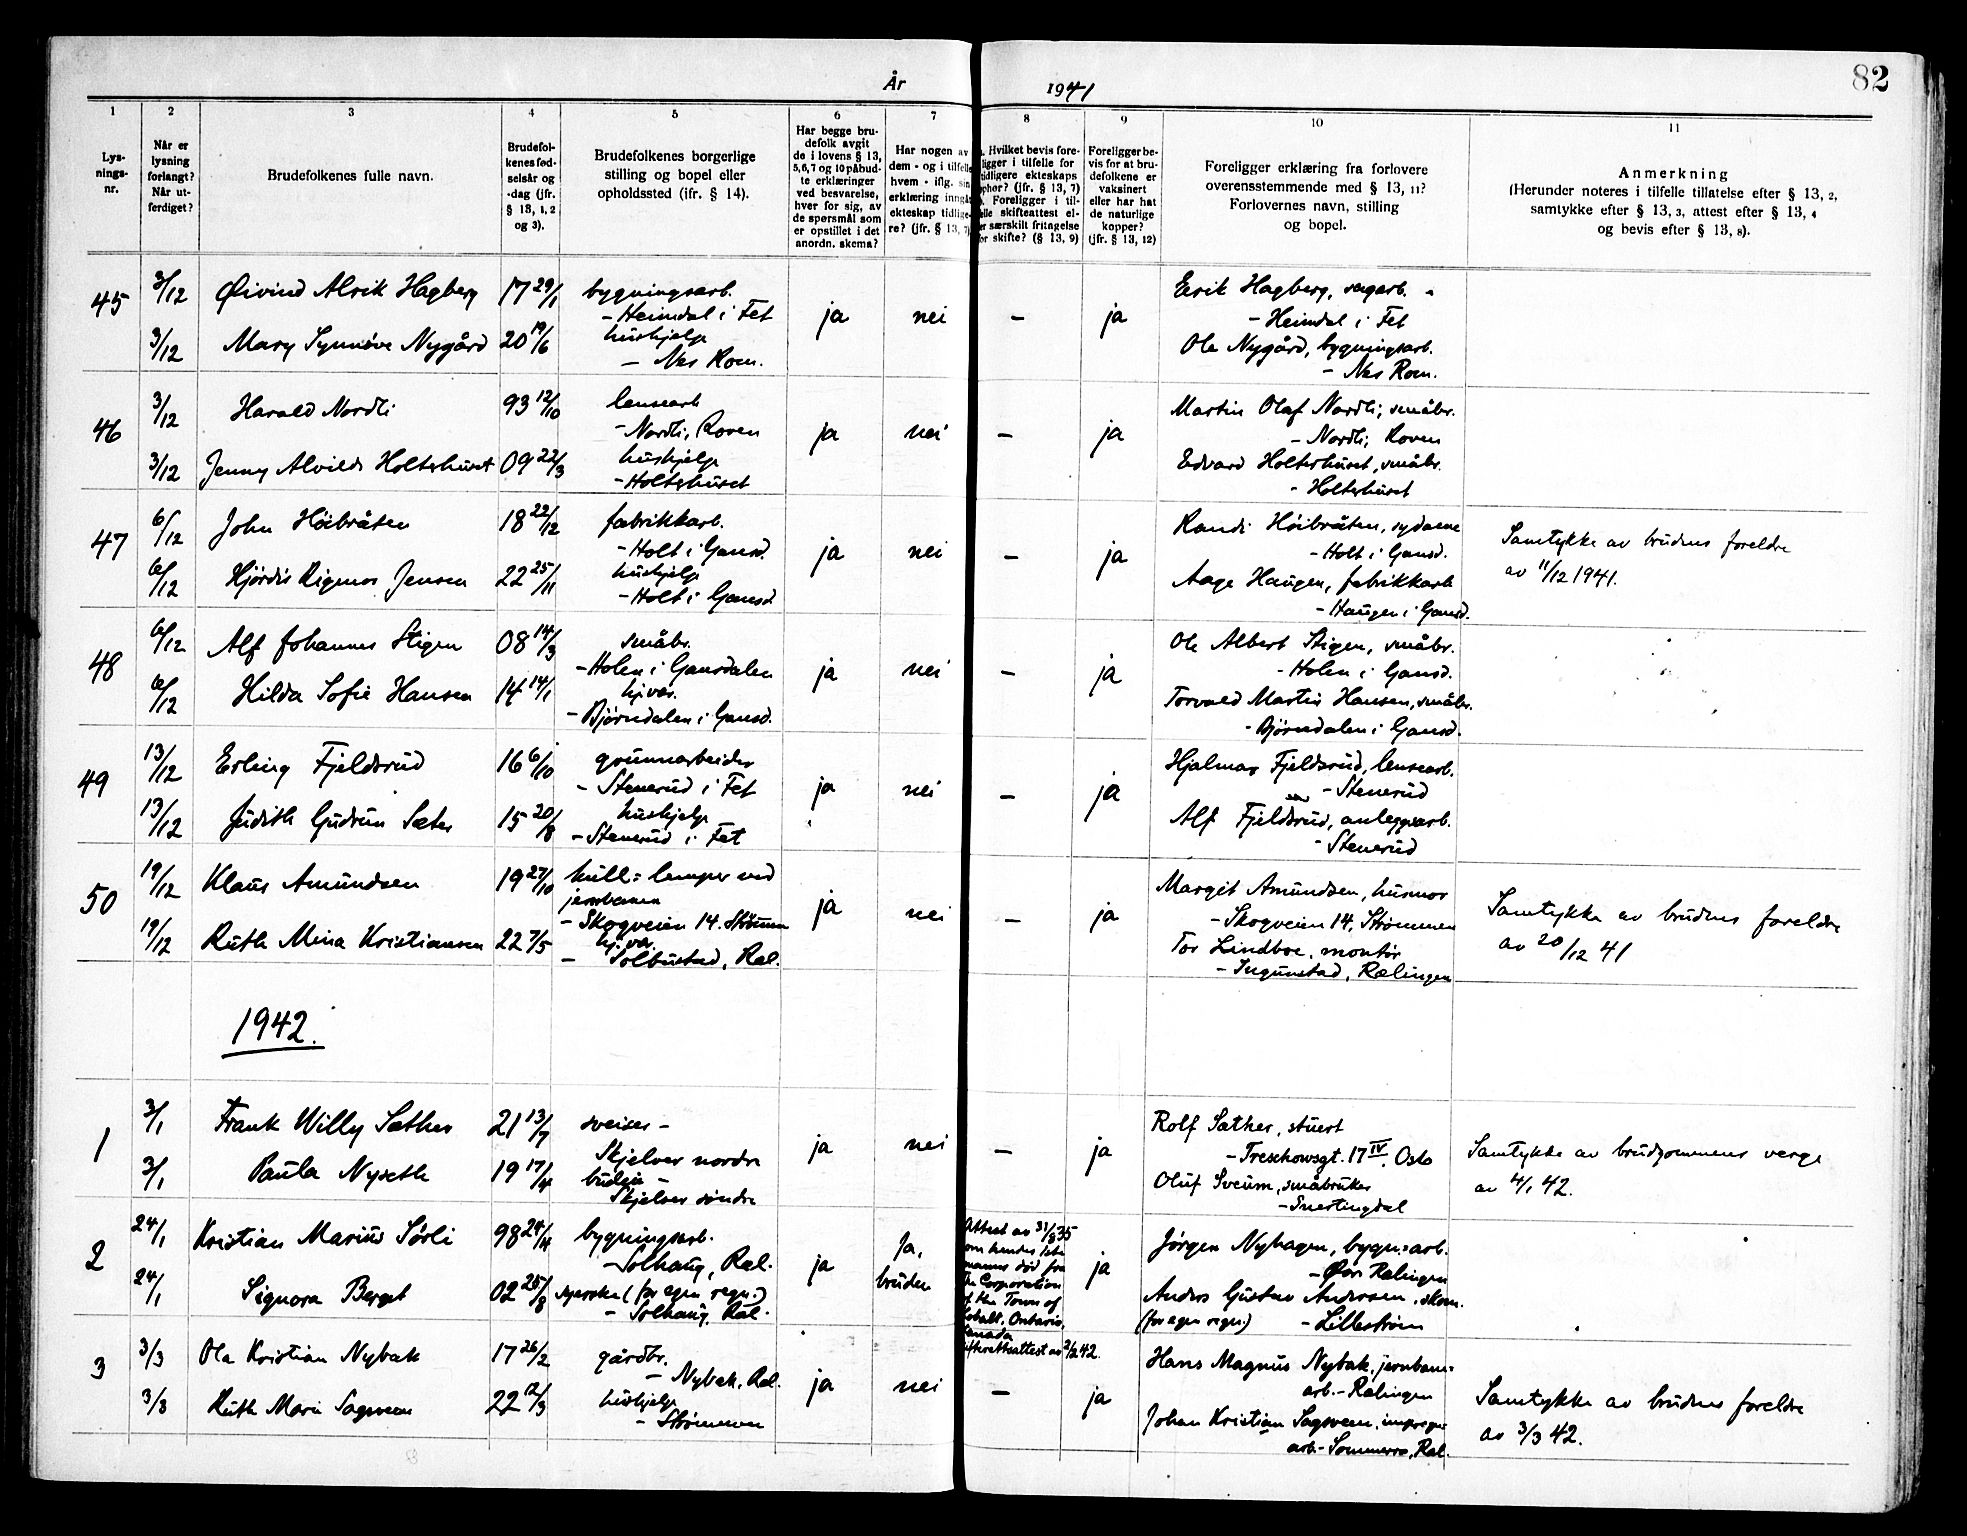 År 1941
82
1 2 3 4 5 6 7 8 9 10 11
Lys-
nings-
nr.
Når er
lysning
forlangt?
Når ut-
ferdiget?
Brudefolkenes fulle navn.
Brudefol-
kenes fød-
selsår og
-dag (jfr.
§ 13, 1, 2
og 3).
Brudefolkenes borgerlige
stilling og bopel eller
opholdssted (ifr. § 14).
Har begge bru-
defolk avgit
de i lovens § 13,
5,6,7 og 10 påbud-
te erklæringer
ved besvarelse,
hver for sig, av
de spørsmål som
er opstillet i det
anordn. skema?
Har nogen av
dem - og i tilfelle
hvem - iflg. sin
erklæring inngått
ekteskap tidlige-
re? (jfr. § 13, 7)
Hvilket bevis fore-
ligger i tilfelle for
tidligere ekteskaps
ophør? (jfr. § 13, 7)
Foreligger i til-
felle skifteattest el-
er særskilt fritagelse
for skifte? (§ 13, 9)
Foreligger be-
vis for at bru-
defolkene er
vaksinert
eller har hat
de naturlige
kopper?
(jfr. § 13, 12)
Foreligger erklæring fra forlovere
overensstemmende med § 13, 11?
Forlovernes navn, stilling
og bopel.
Anmerkning
(Herunder noteres i tilfelle tillatelse efter § 13, 2,
samtykke efter § 13, 3, attest efter § 13, 4
og bevis efter § 13, 8).
45 3/12 Øivind Alrik Hagberg 17 29/1 bygningsarb.
- Heimdal i Fet
3/12 Mary Synnöve Nygård 20 19/6 hushjelp
- Nes Rom.
ja nei - ja
Erik Hagberg, sagarb.
- Heimdal i Fet
Ole Nygård, bygningsarb.
- Nes Rom.
46 3/12 Harald Nordli 93 12/10 lensearb
- Nordli, Roven
3/12 Jenny Alvilde Holterhuset 09 22/3 hushjelp
- Holterhuset
ja nei - ja
Martin Olaf Nordli, småbr.
- Nordli, Roven
Edvard Holterhuset, småbr.
- Holterhuset
47 6/12 John Höibråten 18 22/12 fabrikkarb.
- Holt i Gansd.
6/12 Hjördis Rigmor Jensen 22 25/11 hushjelp
- Holt i Gansd.
ja nei - ja
Randi Höibråten, sydame
- Holt i Gansd.
Aage Haugen, fabrikkarb
- Haugen i Gansd.
Samtykke av brudens foreldre
av 11/12 1941.
48 6/12 Alf Johannes Stigen 08 14/3 småbr.
- Holen i Gansdalen
6/12 Hilda Sofie Hansen 14 14/1 hjvær.
- Bjørndalen i Gansd.
ja nei - ja
Ole Albert Stigen, småbr.
- Holen i Gansd.
Torvald Martin Hansen, småbr.
- Bjørndalen i Gansd.
49 13/12 Erling Fjeldsrud 16 6/10 grunnarbeider
- Stenerud i Fet
13/12 Judith Gudrun Sæter 15 20/8 hushjelp
- Stenerud i Fet
ja nei - ja
Hjalmar Fjeldsrud, lensearb.
- Stenerud
Alf Fjeldsrud, anleggsarb.
- Stenerud
50 19/12 Klaus Amundsen 19 27/10 kull = lemper ved
jernbanen
- Skogveien 14. Strømmen
19/12 Ruth Mina Kristiansen 22 7/5 hj.vær.
- Solbustad, Ræl.
ja nei - ja
Margit Amundsen, husmor
- Skogveien 14, Strømmen
Tor Lindboe, montør
- Ingunstad, Rælingen
Samtykke av brudens foreldre
av 20/12 41
1942.
1 3/1 Frank Willy Sæther 21 13/7 sveiser -
Skjelver nordre
3/1 Paula Nyseth 19 17/4 budeie -
Skjelver søndre
ja nei - ja
Rolf Sæther, stuert
- Treschowsgt. 17 IV, Oslo
Oluf Sveum, småbruker
- Snertingdal
Samtykke av brudgommens verge
av 4/1 42.
2 24/1 Kristian Marius Sörli 98 24/4 bygningsarb.
- Solhaug, Ræl.
24/1 Signora Berget 02 25/8 syerske (for egen regn.)
- Solhaug, Ræl.
ja Ja,
bruden
Attest av 31/8 35
om hendes 1ste
manns død fra
The Corporation
of the Town of
Cobalt, Ontario,
Canada
Skifterettsattest av 2/2 42.
ja
Jørgen Nyhagen, bygn.=arb.
- Øvr Rælingen
Anders Gustav Andersen, skom.
(for egen regn.) - Lillestrøm
3 3/3 Ola Kristian Nybak 17 26/2 gårdbr.
- Nybak, Ræl.
3/3 Ruth Marie Sagveen 22 12/3 hushjelp
- Strömmen
ja nei - ja
Hans Magnus Nybak, jernbane=
arb. - Rælingen
Johan Kristian Sagveen, impregn
arb. - Sommerro, Ræl.
Samtykke av brudens foreldre
av 3/3 42.